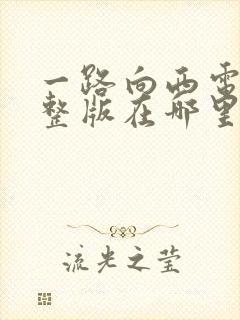 一路向西电
整版在哪里
流光之莹